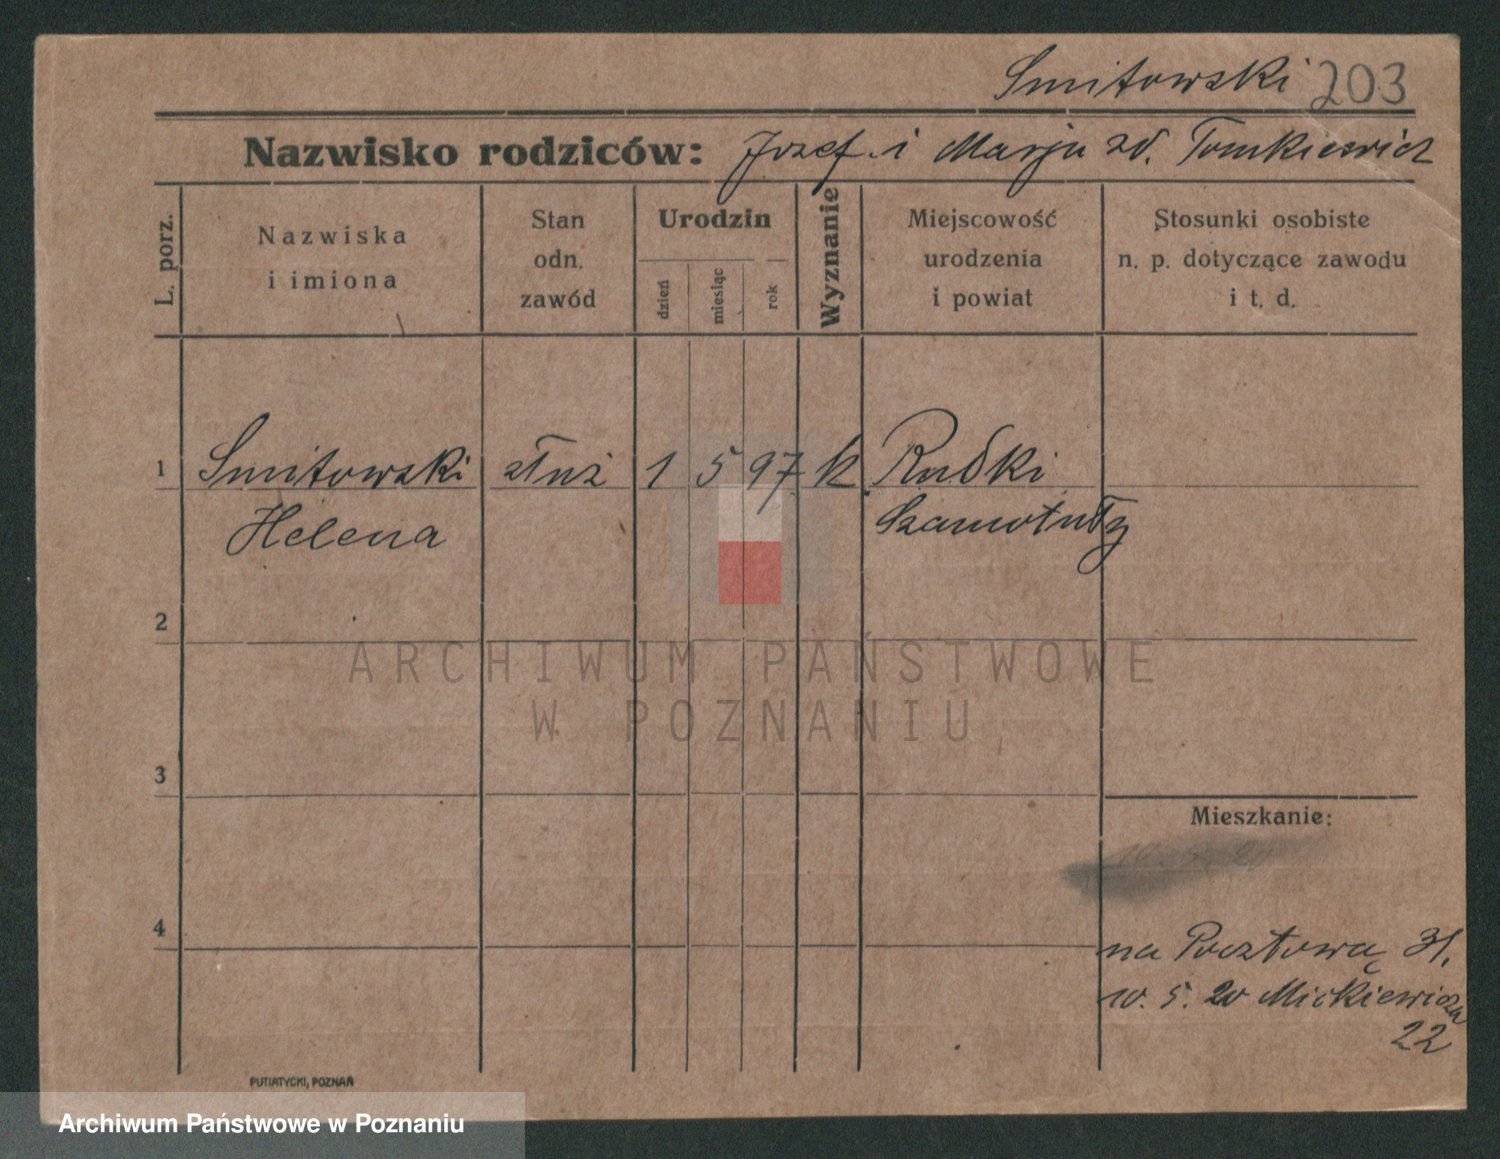 Smitowski 203
Nazwisko rodziców: Jozef i Marja zd. Tomkiewicz
L. porz.
Nazwiska
i imiona
Stan
odn.
zawód
Urodzin
dzień
miesiąc
rok
Wyznanie
Miejscowość
urodzenia
i powiat
Stosunki osobiste
n. p. dotyczące zawodu
i t. d.
1 Smitowski służ 1 5 97 k Rudki
Helena Szamotuły
2
ARCHIWUM PAŃSTWOWE
W POZNANIU
3
Mieszkanie:
4
na Pocztową 31.
10. 5. 20 Mickiewicza
22
PUTIATYCKI, POZNAŃ
Archiwum Państwowe w Poznaniu